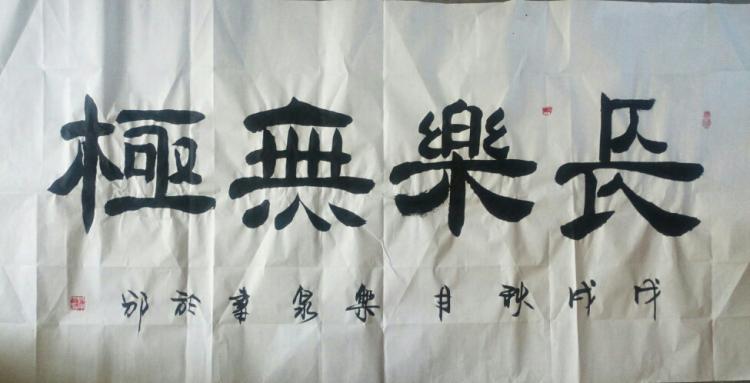 長樂無極
戊戌秋月樂泉書於邠